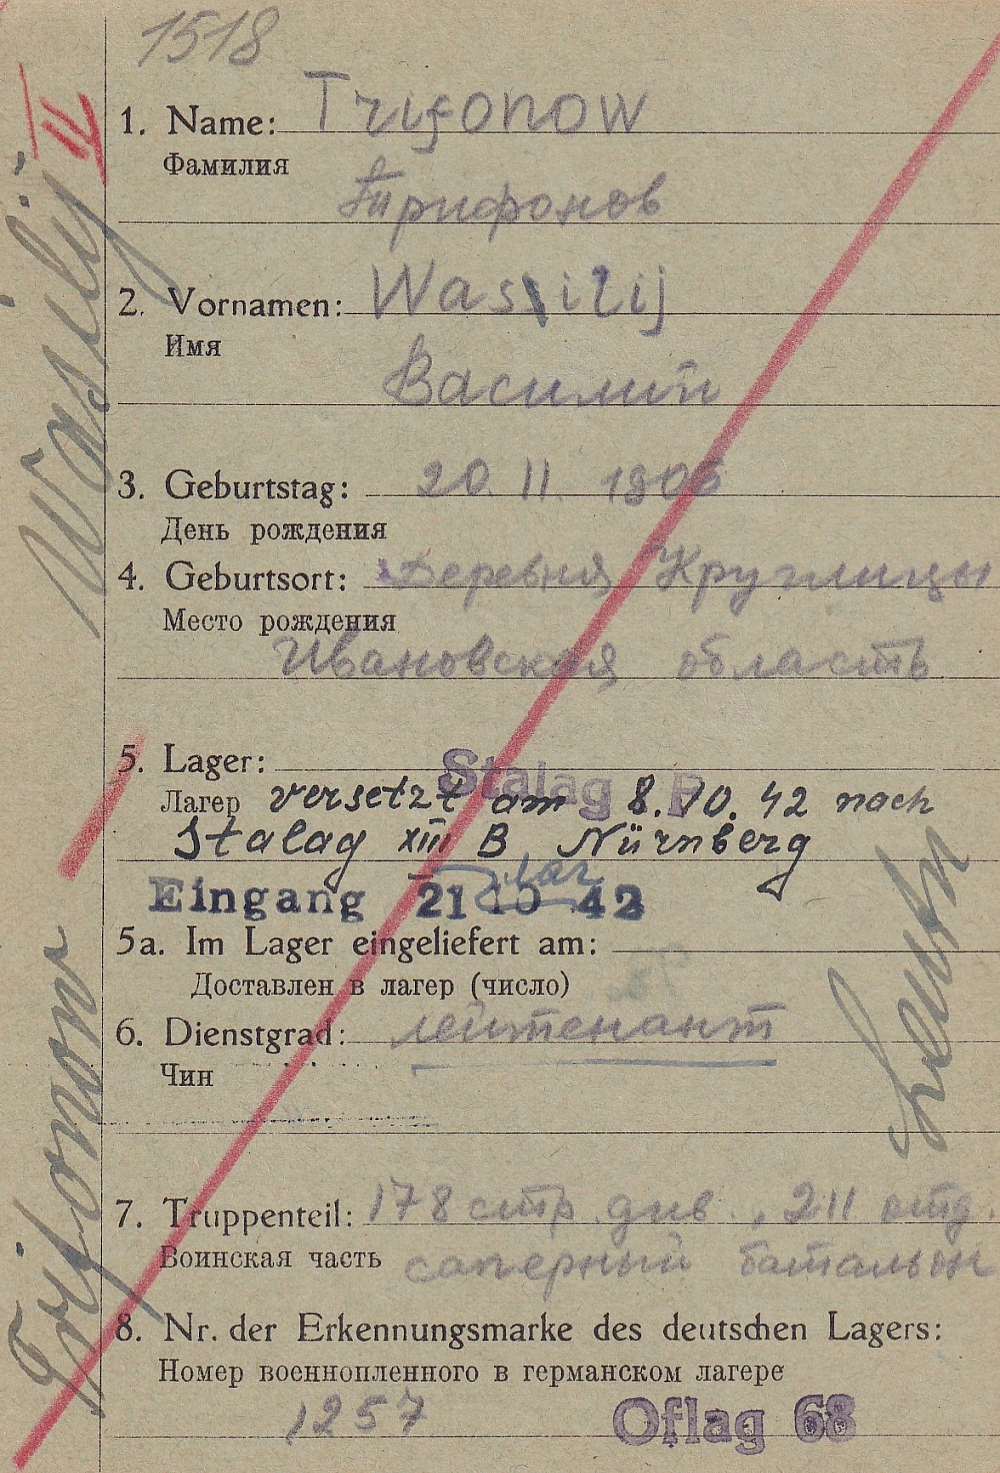 1518
II
1. Name: Trifonow
Фамилия
Трифонов
2. Vornamen: Wassilij
Имя
Василий
3. Geburtstag: 20. II. 1906
День рождения
4. Geburtsort: Деревня Круглицы
Место рождения
Ивановская область
5. Lager: Stalag F
Лагер versetzt am 8.10.42 nach
Stalag XIII B Nürnberg
Eingang 21 42
5a. Im Lager eingeliefert am:
Доставлен в лагер (число)
6. Dienstgrad: лейтенант
Чин
7. Truppenteil: 178 стр. див., 211 отд.
Воинская часть саперный батальон
8. Nr. der Erkennungsmarke des deutschen Lagers:
Номер военнопленного в германском лагере
1257 Oflag 68
Trifonow Wasilij